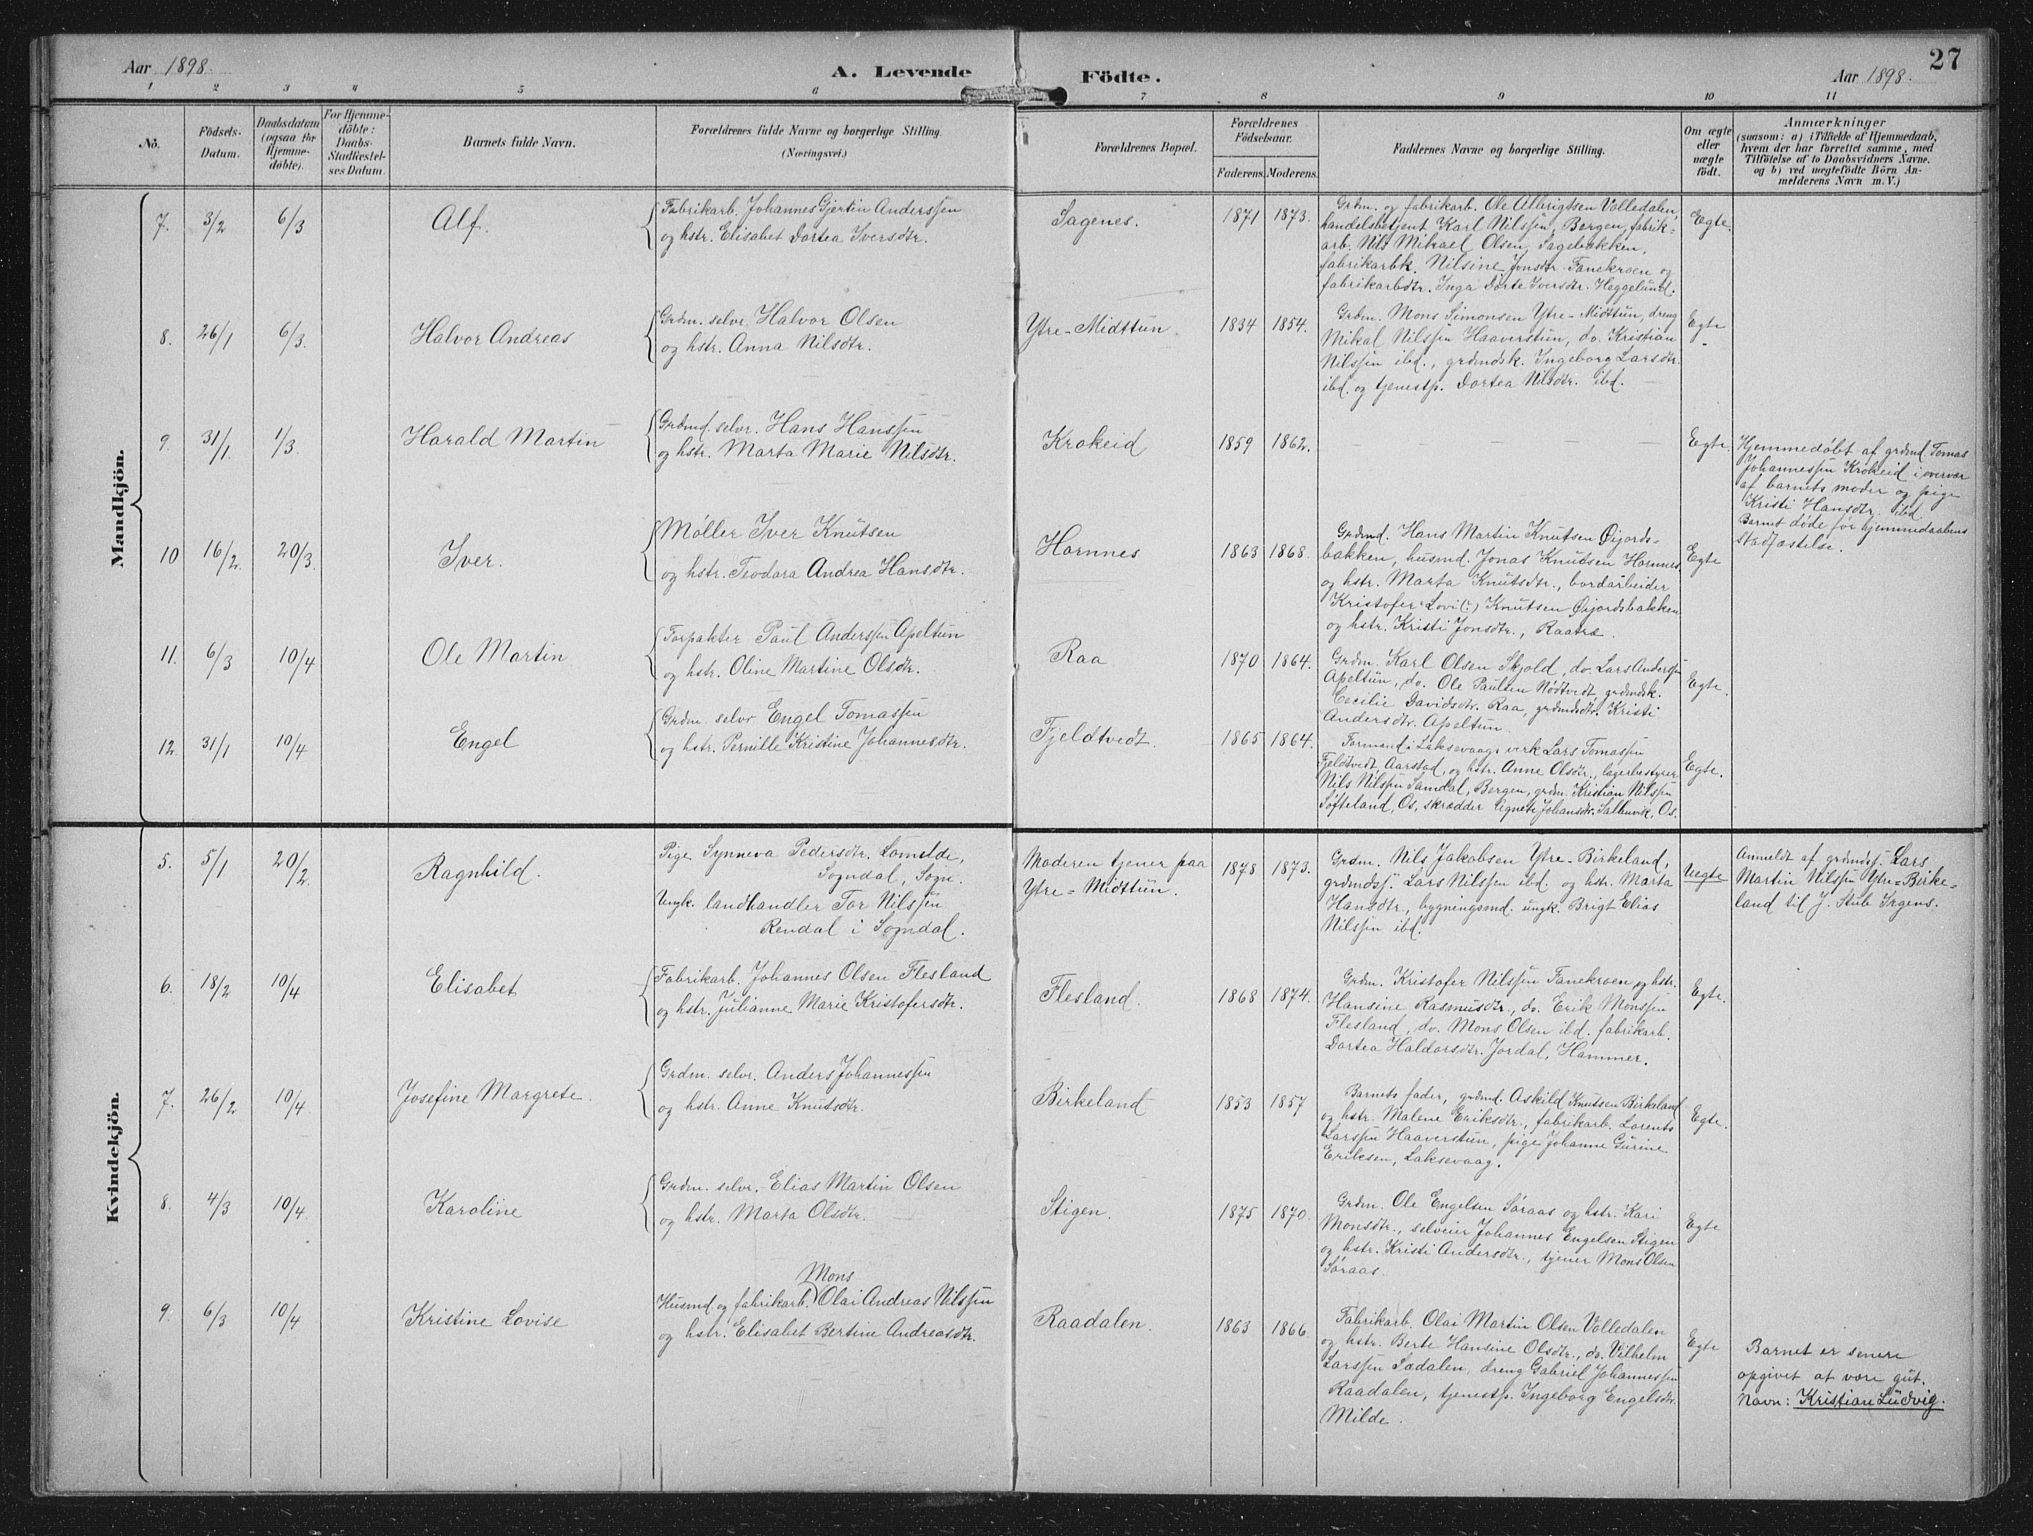 27
Aar 1898. A. Levende Födte. Aar 1898.
1 2 3 4 5 6 7 8 9 10 11
No.
Födsels-
Datum.
Daabsdatum
(ogsaa for
Hjemme-
döbte).
For Hjemme-
döbte:
Daabs-
Stadfæstel-
ses Datum.
Barnets fulde Navn.
Forældrenes fulde Navne og borgerlige Stilling.
(Næringsvei.)
Forældrenes Bopæl.
Forældrenes
Födselsaar.
Faderens. Moderens.
Faddernes Navne og borgerlige Stilling.
Om ægte
eller
uægte
födt.
Anmærkninger
(saasom: a) i Tilfælde af Hjemmedaab,
hvem der har forrettet samme, med
Tilföielse af to Daabsvidners Navne.
og b) ved uægtefödte Börn An-
melderens Navn m. V.)
Mandkjön.
7. 3/2 6/3 Alf.
Fabrikarb. Johannes Gjertin Anderssen
og hstr. Elisabet Dortea Iversdtr.
Sagenes. 1871 1873.
Grdm. og fabrikarb. Ole Albrigtsen Volledalen,
handelsbetjent Karl Nilssen, Bergen, fabrik=
arb. Nils Mikael Olsen, Sagebakken,
fabrikarbk. Nilsine Jonsdtr. Fanekroen og
fabrikarbdtr. Inga Dorte Iversdtr. Heggelund.
Egte.
8. 26/1 6/3. Halvor Andreas
Grdm. selv. Halvor Olsen
og hstr. Anna Nilsdtr.
Ytre-Midttun. 1834 1854.
Grdm. Mons Simonsen Ytre-Midttun, dreng
Mikal Nilssen Haaverstun, do. Kristian
Nilssen ibd., grdmdsk. Ingeborg Larsdtr.
ibd. og tjenestp. Dortea Nilsdtr. ibd.
Egte
9 31/1. 1/3. Harald Martin
Grdmd. selv. Hans Hanssen
og hstr. Marta Marie Nilsdtr.
Krokeid 1859 1862.
Egte.
Hjemmedøbt af grdmd. Tomas
Johannessen Krokeid i overvær
af barnets moder og pige
Kristi Hansdtr. ibd.
Barnet døde før hjemmedaabens
stadfæstelse.
10 16/2. 20/3. Iver.
Møller Iver Knutsen
og hstr. Teodora Andrea Hansdtr.
Hornnes 1863 1868.
Grdmd. Hans Martin Knutsen Øijords-
bakken, husmd. Jonas Knutsen Hornnes
og hstr. Marta Knutsdtr., bordarbeider
Kristofer Lovi (:) Knutsen Øijordsbakken
og hstr. Kristi Jonsdtr., Raatræ.
Egte
11. 6/3 10/4 Ole Martin
Forpakter Paul Anderssen Apeltun
og hstr. Oline Martine Olsdtr.
Raa 1870 1864.
Grdm. Karl Olsen Skjold, do. Lars Anderssen
Apeltun, do. Ole Paulsen Nødtvedt, grdmdsk.
Cecilie Davidsdtr. Raa, grdmdsdtr. Kristi
Andersdtr. Apeltun.
Egte.
12. 31/1 10/4 Engel
Grdm. selv. Engel Tomassen
og hstr. Pernille Kristine Johannesdtr.
Fjeldtvedt. 1865 1864.
Formand i Laksevaags verk Lars Tomassen
Fjeldtvedt, Aarstad, og hstr. Anne Olsdtr., lagerbestyrer
Nils Nilssen Samdal, Bergen, grdm. Kristian Nilssen
Søfteland, Os, skrædder Agnete Johansdtr. Sælenvik, Os.
Egte.
Kvindekjön.
5. 5/1 20/2. Ragnhild.
Pige Synneva Pedersdtr. Lomelde,
Sogndal, Sogn.
Ungk. landhandler Tor Nilssen
Rendal i Sogndal.
Moderen tjener paa
Ytre=Midttun.
1878 1873.
Grdm. Nils Jakobsen Ytre-Birkeland,
grdmdss. Lars Nilssen ibd. og hstr. Marta
Hansdtr., bygningsmd. ungk. Brigt Elias
Nilssen ibd.
Uegte
Anmeldt af grdmdss. Lars
Martin Nilssen Ytre=Birke=
land til J. Stub Irgens.
6. 18/2 10/4 Elisabet
Fabrikarb. Johannes Olsen Flesland
og hstr. Julianne Marie Kristofersdtr.
Flesland. 1868 1874.
Grdm. Kristofer Nilssen Fanekroen og hstr.
Hansine Rasmusdtr., do. Erik Monssen
Flesland, do. Mons Olsen ibd. fabrikarb.
Dortea Haldorsdtr. Jordal, Hammer.
Egte.
7. 26/2 10/4 Josefine Margrete.
Grdm. selv. Anders Johannessen
og hstr. Anne Knutsdtr.
Birkeland 1853 1857
Barnets fader, grdmd. Askild Knutsen Birkeland
og hstr. Malene Eriksdtr., fabrikarb. Lorents
Larssen Haaverstun, pige Johanne Gurine
Eriksen, Laksevaag.
Egte.
8. 4/3 10/4. Karoline
Grdm. selv. Elias Martin Olsen
og hstr. Marta Olsdtr.
Stigen. 1875 1870.
Grdm. Ole Engelsen Søraas og hstr. Kari
Monsdtr., selveier Johannes Engelsen Stigen
og hstr. Kristi Andersdtr., tjener Mons Olsen
Søraas.
Egte
9. 6/3 10/4 Kristine Lovise
Mons
Husmd. og fabrikarb. Olai Andreas Nilssen
og hstr. Elisabet Bertine Andreasdtr.
Raadalen. 1863 1866
Fabrikarb. Olai Martin Olsen Volledalen
og hstr. Berte Hansine Olsdtr., do. Vilhelm
Larssen Sædalen, dreng Gabriel Johannessen
Raadalen, tjenestp. Ingeborg Engelsdtr.
Milde.
Egte
Barnet er senere
opgivet at være gut.
Navn: Kristian Ludvig.